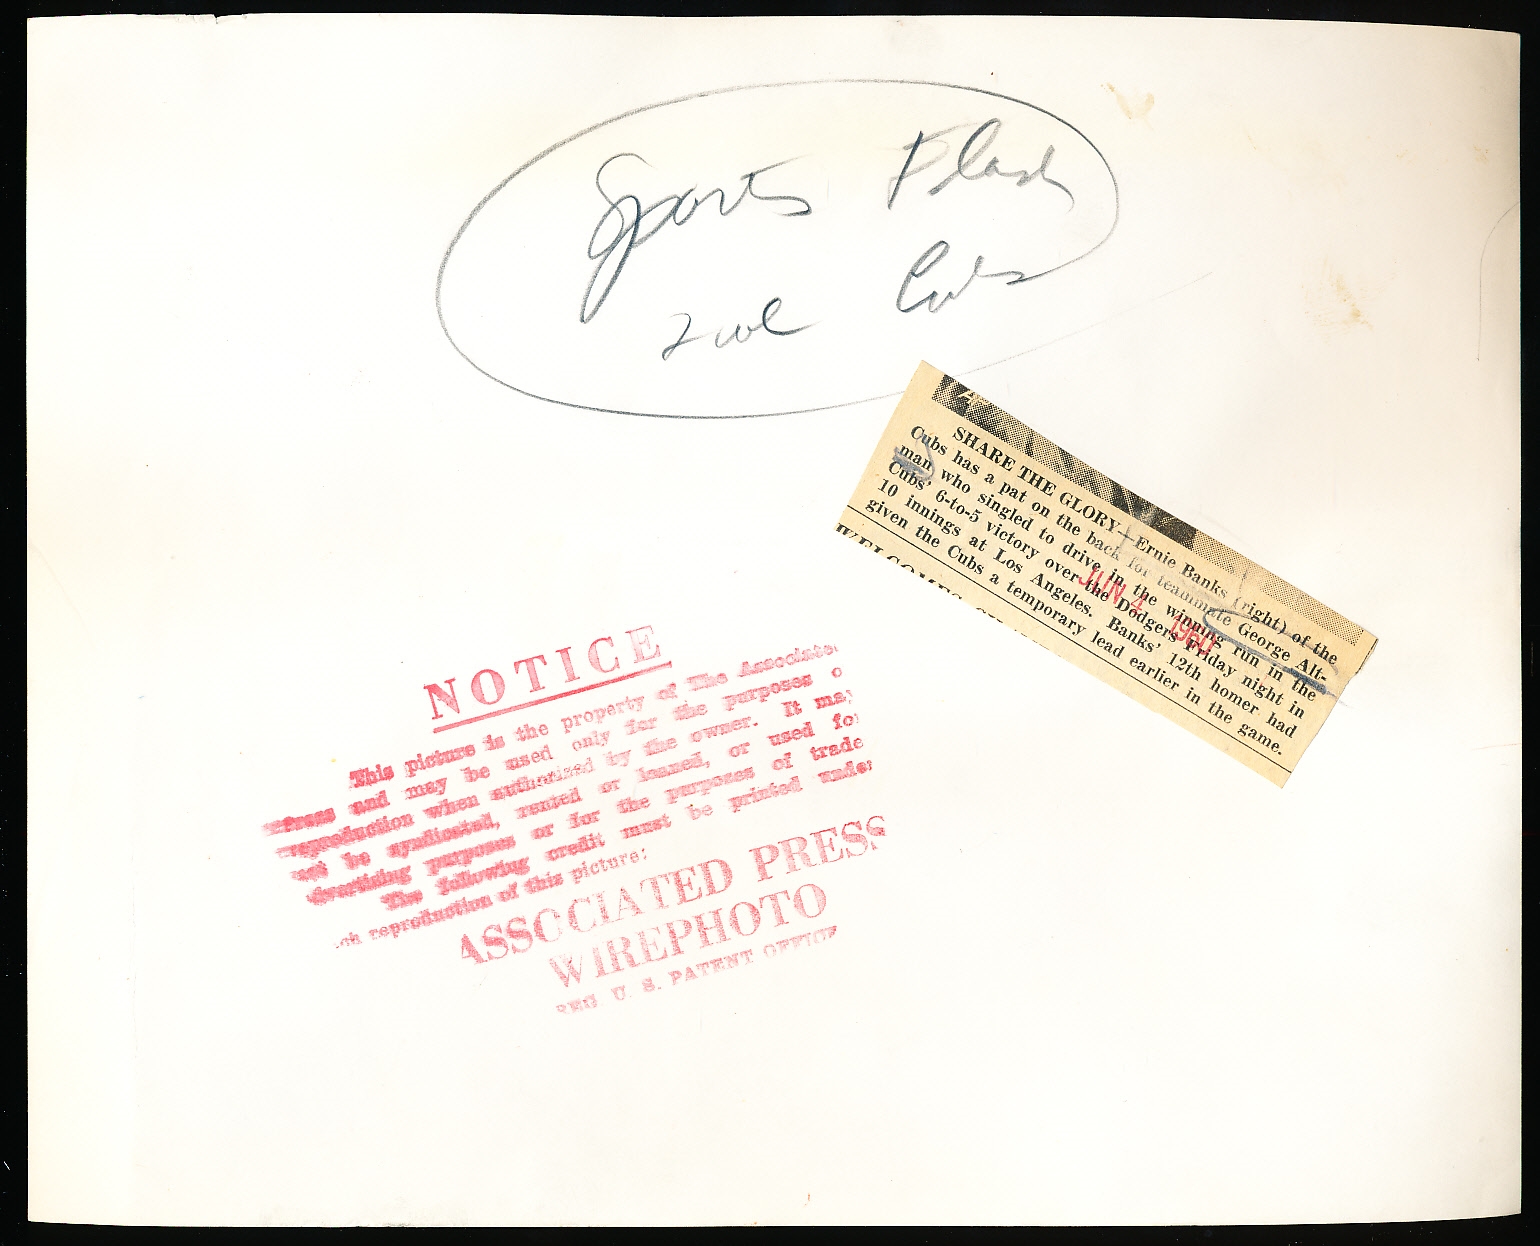 Sports Flash
2 col Cubs
SHARE THE GLORY—Ernie Banks (right) of the
Cubs has a pat on the back for teammate George Alt-
man who singled to drive in the winning run in the
Cubs' 6-to-5 victory over the Dodgers Friday night in
10 innings at Los Angeles. Banks' 12th homer had
given the Cubs a temporary lead earlier in the game.
JUN 4 1960
NOTICE
This picture is the property of The Associate
Press and may be used only for the purposes o
reproduction when authorized by the owner. It may
not be syndicated, rented or loaned, or used fo
dvertising purposes or for the purposes of trade
The following credit must be printed unde
ch reproduction of this picture:
ASSOCIATED PRESS
WIREPHOTO
REG U. S. PATENT OFFICE